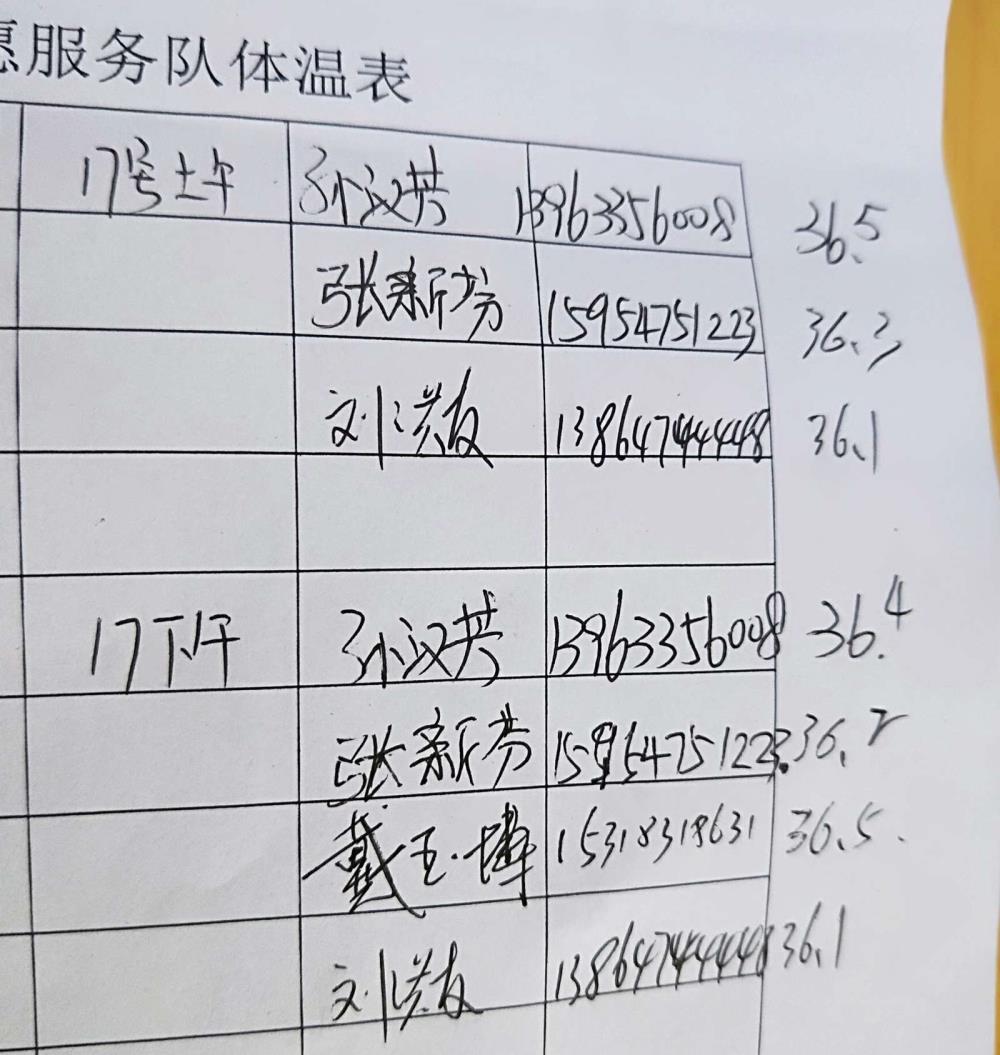 愿服务队体温表
17号上午 孙汉芳 13963356008 36.5
张新芳 15954751223 36.3
刘洪友 13864744448 36.1
17下午 孙汉芳 13963356008 36.4
张新芳 15954751223 36.2
戴玉 15318319631 36.5
刘洪友 13864744448 36.1